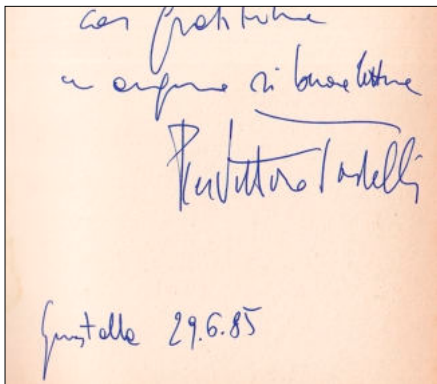 con gratitudine
e augurio di buona lettura
Pier Vittorio Tondelli
Guastalla 29.6.85